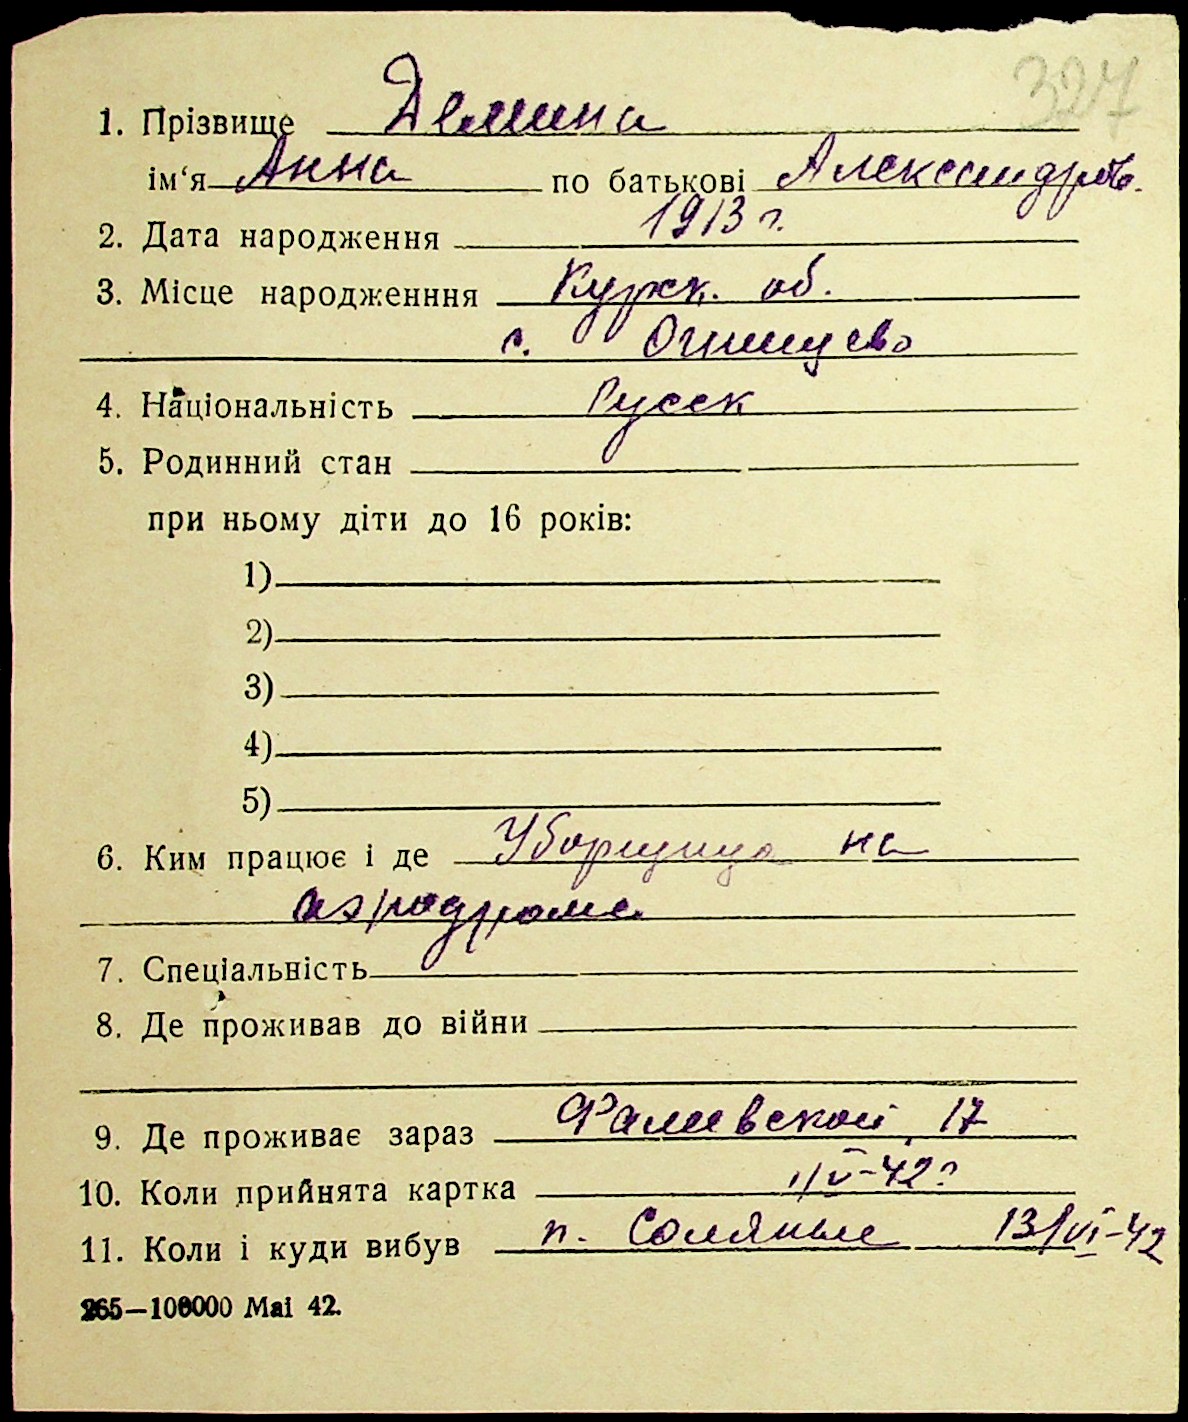 327
1. Прізвище Демина
ім‘я Анна по батькові Александров.
2. Дата народження 1913 г.
3. Місце народженння Курск. об.
с. Огнищево
4. Національність Русск
5. Родинний стан
при ньому діти до 16 років:
1)
2)
3)
4)
5)
6. Ким працює і де Уборщица на
аэродроме
7. Спеціальність
8. Де проживав до війни
9. Де проживає зараз Фалеевской 17
10. Коли прийнята картка 1/V-42г
11. Коли і куди вибув п. Соляные 13/VI-42
265—100000 Mai 42.